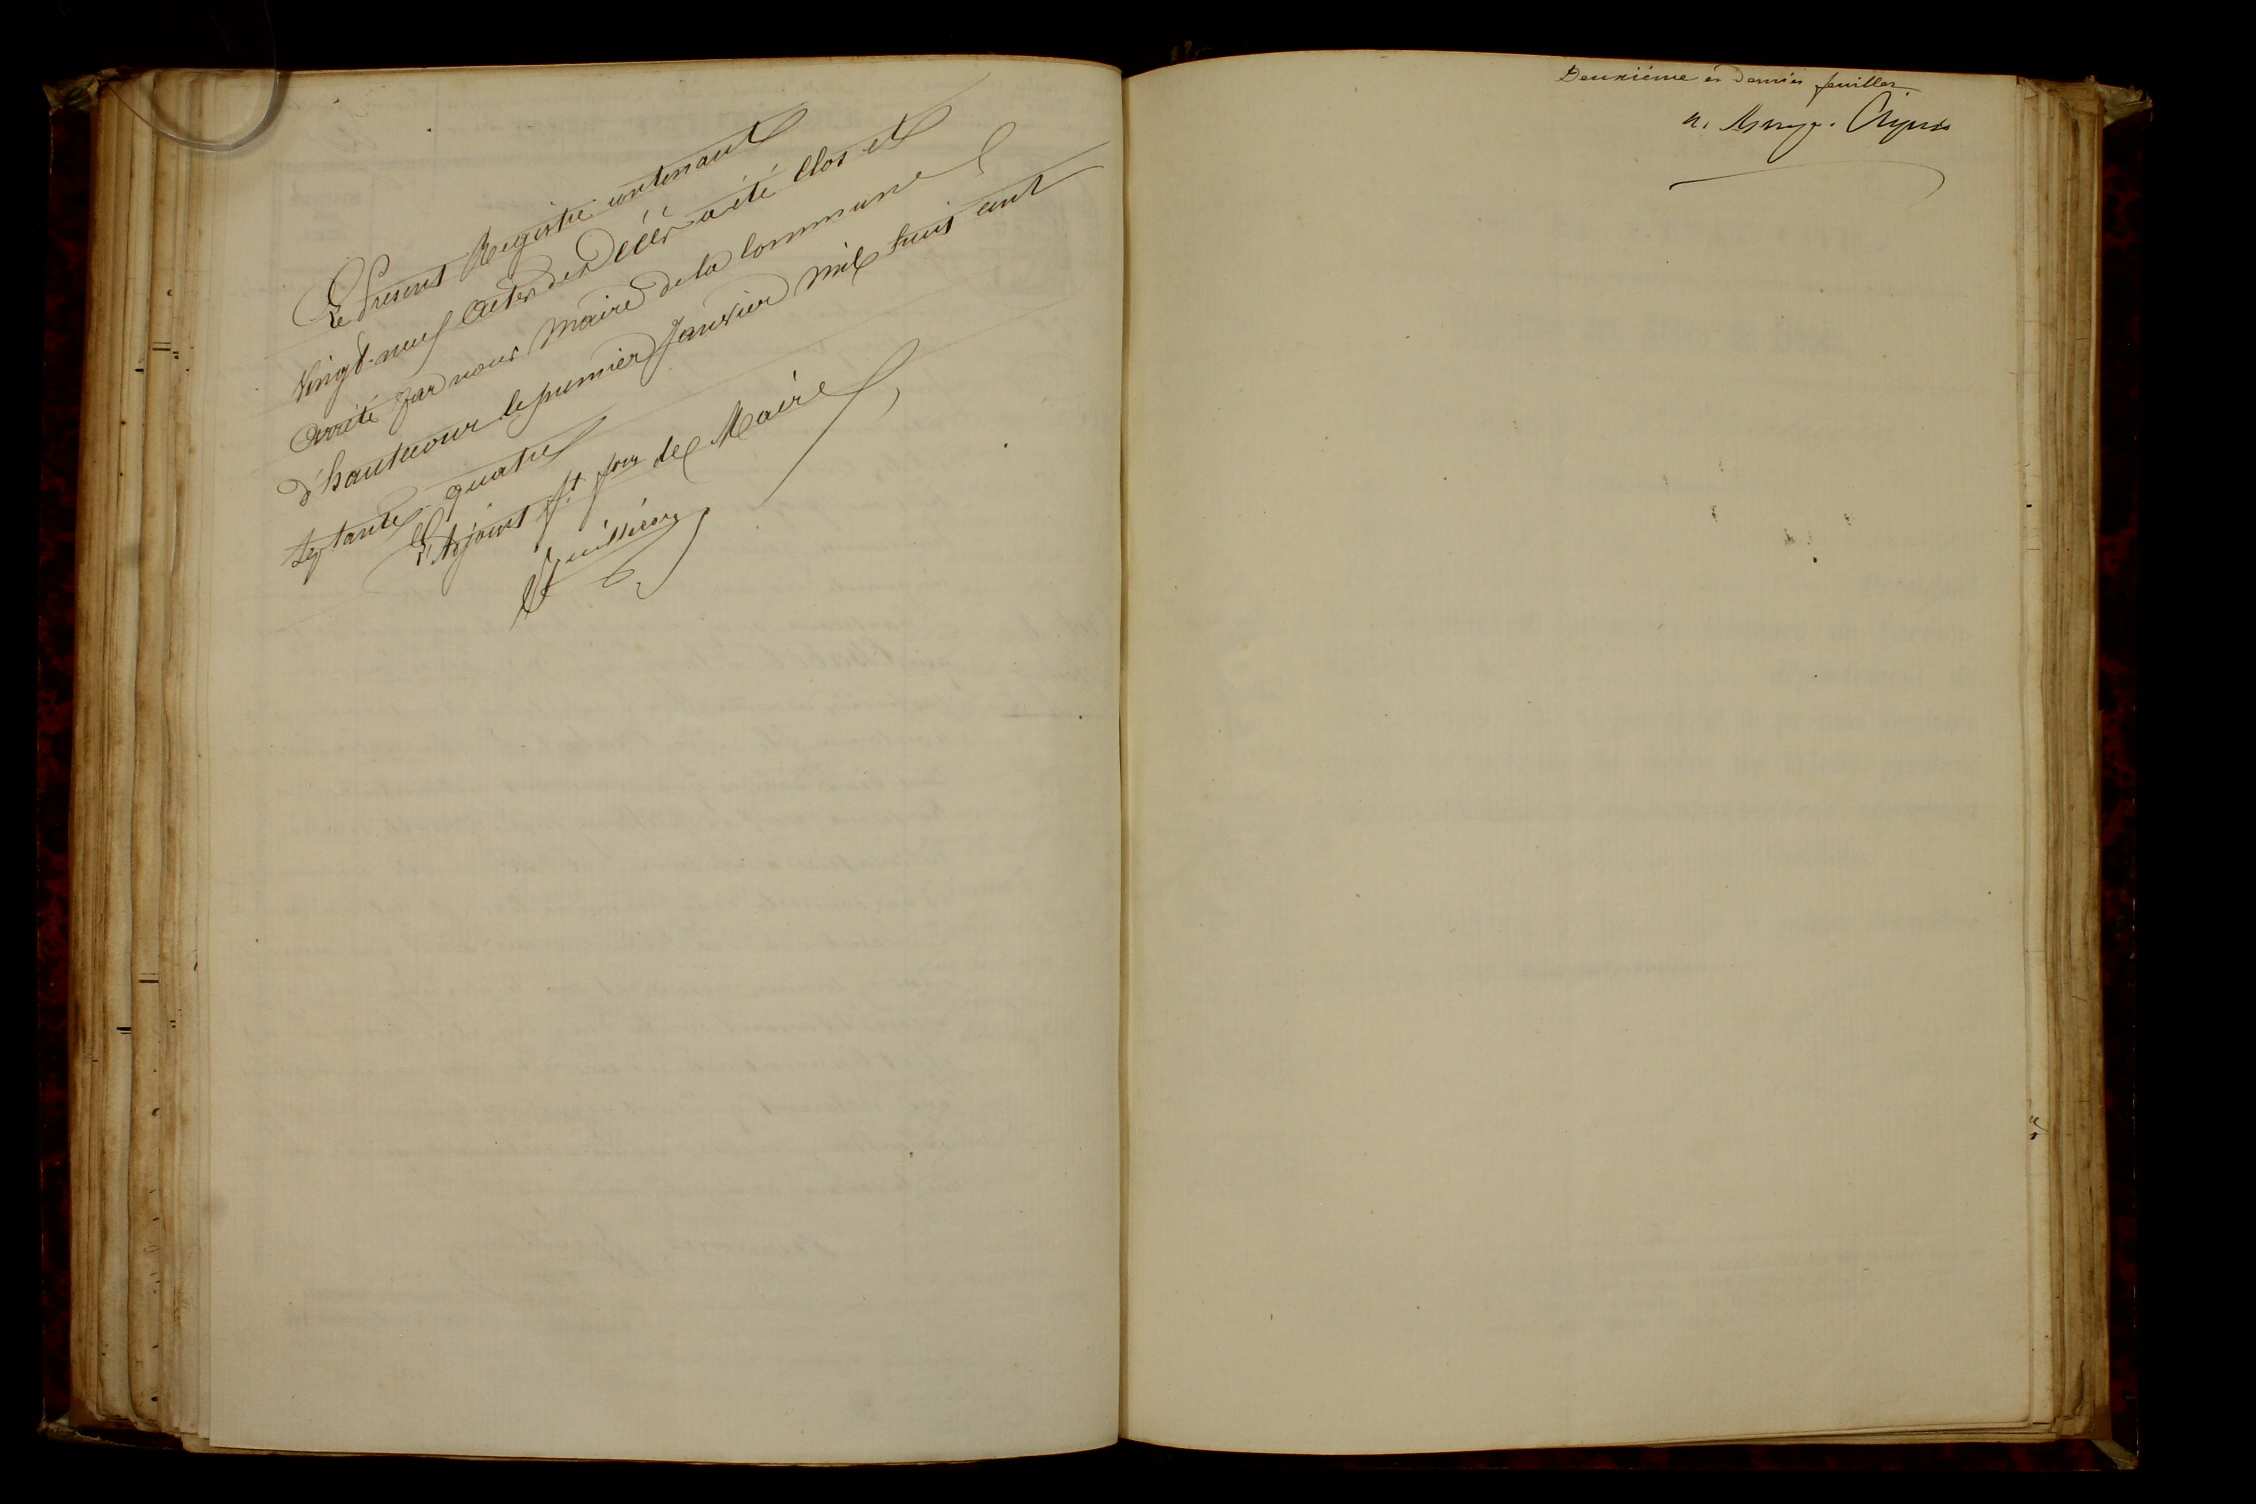 Le Présent Registre contenant
vingt-neuf actes de Décès a été Clos et
arrêté par nous Maire de la Commune
d'hautecour le premier Janvier mil huit cent
septante quatre
L'Adjoint ft fon de Maire
Deuxième et dernier feuillet